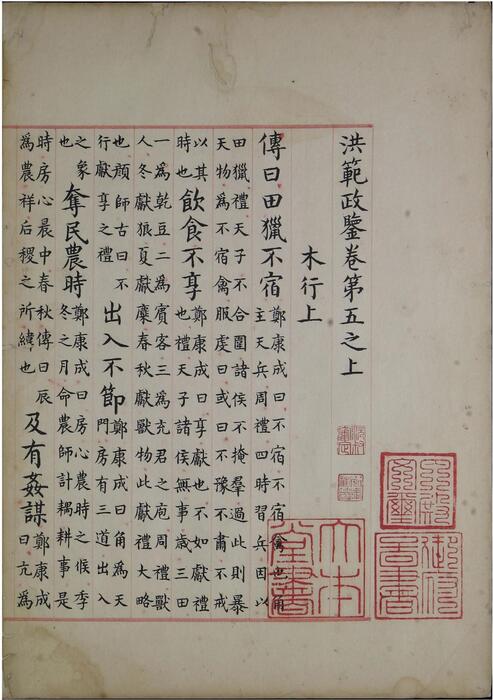 洪範政鑒卷第五之上
木行上
傳曰田獵不宿鄭康成曰不宿不宿禽也角主天兵周禮四時習兵因以
田獵禮天子不合圍諸侯不掩羣過此則暴天物為不宿禽服虔曰或曰不豫不肅不戒
以其時也飲食不享鄭康成曰享獻也不如獻禮也禮天子諸侯無事歲三田
一為乾豆二為賓客三為充君之庖周禮獸人冬獻狼夏獻麋春秋獻獸物此獻禮大略
也顏師古曰不行獻享之禮出入不節鄭康成曰角為天門房有三道出入
之象也奪民農時鄭康成曰房心農時之候季冬之月命農師計耦耕事是
時房心晨中春秋傳曰辰為農祥后稷之所緯也及有姦謀鄭康成曰亢為
緝熙殿寶
御府圖書
大本堂書